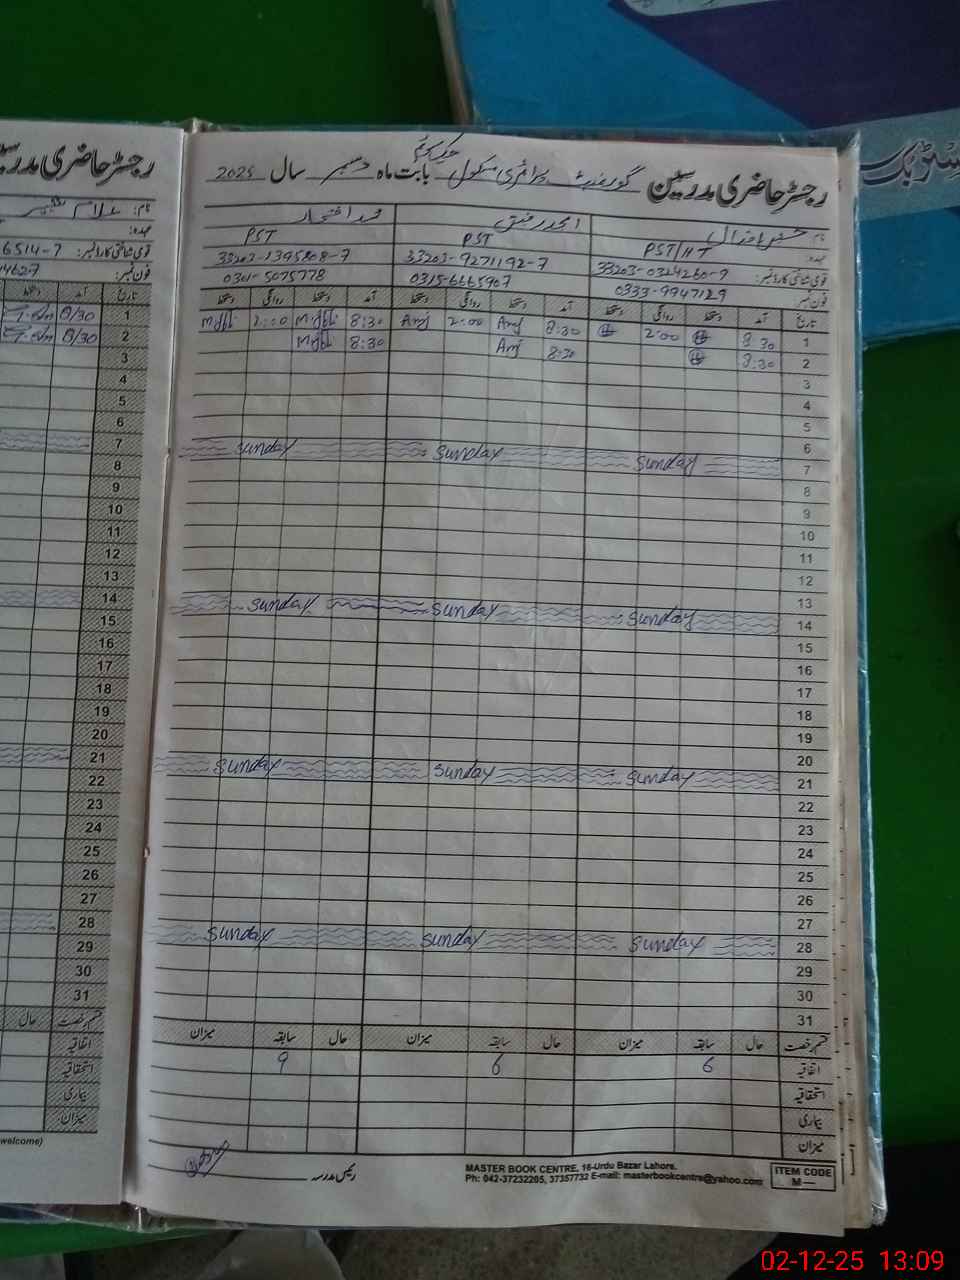 رجسٹر حاضری مدرسین گورنمنٹ پرائمری سکول بابت ماہ دسمبر سال 2025
نام: محمد افتخار امجد رفیق
عہدہ: PST PST PST/HT
قومی شناختی کارڈ نمبر: 33203-1395808-7 33203-9271192-7 33203-0324260-9
فون نمبر: 0301-5075778 0315-6665907 0333-9947129
تاریخ آمد دستخط روانگی دستخط آمد دستخط روانگی دستخط آمد دستخط روانگی دستخط
1 8:30 2:00 8:30 Amj 2:00 Amj 8:30 2:00
2 8:30 8:30 Amj 8:30
3
4
5
6
7 Sunday Sunday Sunday
8
9
10
11
12
13
14 Sunday Sunday Sunday
15
16
17
18
19
20
21 Sunday Sunday Sunday
22
23
24
25
26
27
28 Sunday Sunday Sunday
29
30
31
قسم رخصت حال سابقہ میزان حال سابقہ میزان حال سابقہ میزان
اتفاقیہ 6 6 9
استحقاقیہ
بیماری
میزان
رئیس مدرسہ
MASTER BOOK CENTRE, 16-Urdu Bazar Lahore.
Ph: 042-37232205, 37357732 E-mail: masterbookcentre@yahoo.com
ITEM CODE
M—
رجسٹر حاضری
نام: غلام
عہدہ:
قومی شناختی کارڈ نمبر: 6514-7
فون نمبر: 14627
تاریخ آمد دستخط
1 8/30
2 8/30
3
4
5
6
7
8
9
10
11
12
13
14
15
16
17
18
19
20
21
22
23
24
25
26
27
28
29
30
31
قسم رخصت حال
اتفاقیہ
استحقاقیہ
بیماری
میزان
welcome)
02-12-25 13:09